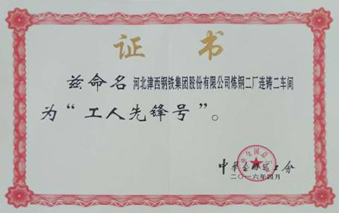 证书
兹命名河北津西钢铁集团股份有限公司炼钢二厂连铸二车间
为“工人先锋号”。
中华全国总工会
二〇一六年四月